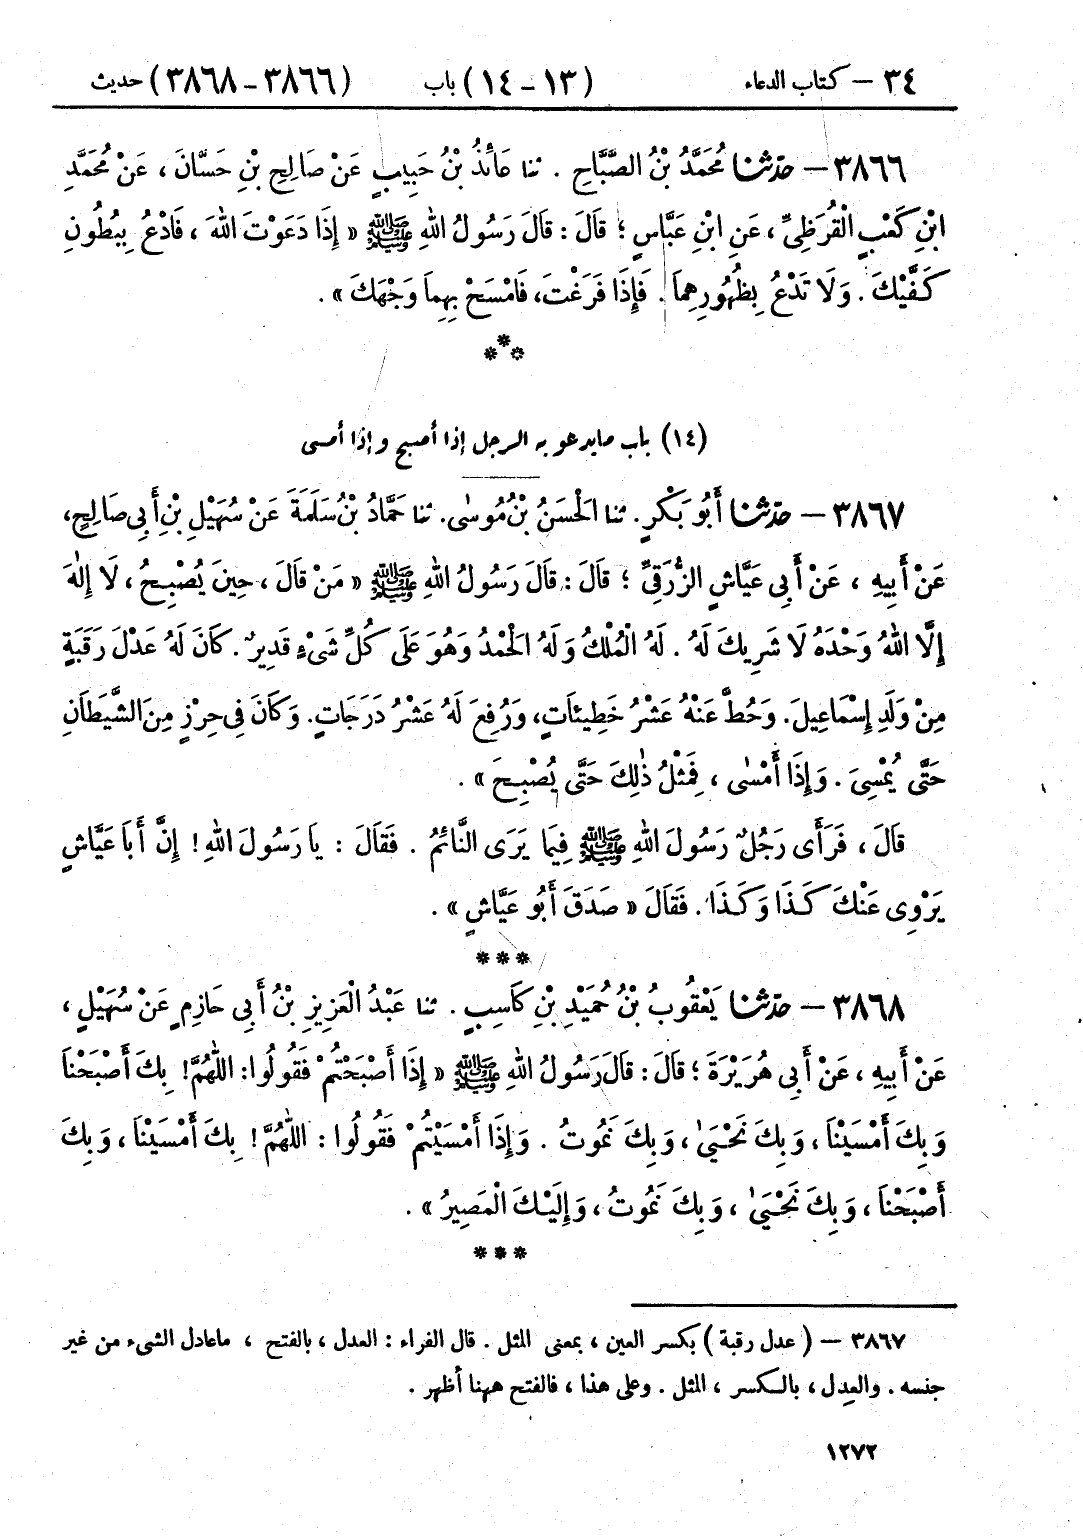 ٣٤ – كتاب الدعاء (١٣ – ١٤) باب (٣٨٦٦ – ٣٨٦٨) حديث
٣٨٦٦ – حَدّثنا مُحَمَّدُ بْنُ الصَّبَّاحِ . ثنا عَائِذُ بْنُ حَبِيبٍ عَنْ صَالِحِ بْنِ حَسَّانَ ، عَنْ مُحَمَّدِ
ابْنِ كَعْبٍ الْقُرَظِىِّ ، عَنِ ابْنِ عَبَّاسٍ ؛ قَالَ : قَالَ رَسُولُ اللهِ ﷺ « إِذَا دَعَوْتَ اللهَ ، فَادْعُ بِبُطُونِ
كَفَّيْكَ . وَلَا تَدْعُ بِظُهُورِهِمَا . فَإِذَا فَرَغْتَ، فَامْسَحْ بِهِمَا وَجْهَكَ » .
***
(١٤) باب مايدعو به الرجل إذا أصبح وإذا أمسى
٣٨٦٧ – حَدّثنا أَبُو بَكْرٍ. ثنا الْحَسَنُ بْنُ مُوسٰى. ثنا حَمَّادُ بْنُ سَلَمَةَ عَنْ سُهَيْلِ بْنِ أَبِي صَالِحٍ،
عَنْ أَبِيهِ ، عَنْ أَبِى عَيَّاشٍ الزُّرَقِىِّ ؛ قَالَ : قَالَ رَسُولُ اللهِ ﷺ « مَنْ قَالَ ، حِينَ يُصْبِحُ ، لَا إِلٰهَ
إِلَّا اللهُ وَحْدَهُ لَا شَرِيكَ لَهُ . لَهُ الْمُلْكُ وَلَهُ الْحَمْدُ وَهُوَ عَلَى كُلِّ شَىْءٍ قَدِيرٌ . كَانَ لَهُ عَدْلَ رَقَبَةٍ
مِنْ وَلَدِ إِسْمَاعِيلَ. وَحُطَّ عَنْهُ عَشْرُ خَطِيئَاتٍ، وَرُفِعَ لَهُ عَشْرُ دَرَجَاتٍ. وَكَانَ فِى حِرْزٍ مِنَ الشَّيَطَانِ
حَتَّى يُمْسِىَ . وَإِذَا أَمْسٰى ، فَمِثْلُ ذٰلِكَ حَتَّى يُصْبِحَ » .
قَالَ ، فَرَأَى رَجُلٌ رَسُولَ اللهِ ﷺ فِيمَا يَرَى النَّائِمُ . فَقَالَ : يَا رَسُولَ اللهِ ! إِنَّ أَبَا عَيَّاشٍ
يَرْوِى عَنْكَ كَذَا وَكَذَا . فَقَالَ « صَدَقَ أَبُو عَيَّاشٍ » .
***
٣٨٦٨ – حَدّثنا يَعْقُوبُ بْنُ حُمَيْدِ بْنِ كَاسِبٍ . ثنا عَبْدُ الْعَزِيزِ بْنُ أَبِي حَازِمٍ عَنْ سُهَيْلٍ ،
عَنْ أَبِيهِ ، عَنْ أَبِى هُرَيْرَةَ ؛ قَالَ : قَالَ رَسُولُ اللهِ ﷺ « إِذَا أَصْبَحْتُمْ فَقُولُوا: اللّٰهُمَّ! بِكَ أَصْبَحْنَا
وَبِكَ أَمْسَيْنَا ، وَبِكَ نَحْيَىٰ ، وَبِكَ نَمُوتُ . وَإِذَا أَمْسَيْتُمْ فَقُولُوا : اللّٰهُمَّ! بِكَ أَمْسَيْنَا ، وَبِكَ
أَصْبَحْنَا ، وَبِكَ نَحْيَىٰ ، وَبِكَ نَمُوتُ ، وَإِلَيْكَ الْمَصِيرُ » .
***
٣٨٦٧ – ( عدل رقبة ) بكسر العين ، بمعنى المثل . قال الفراء : العدل ، بالفتح ، ماعادل الشىء من غير
جنسه . والعِدل ، بالكسر ، المثل . وعلى هذا ، فالفتح ههنا أظهر .
١٢٧٢